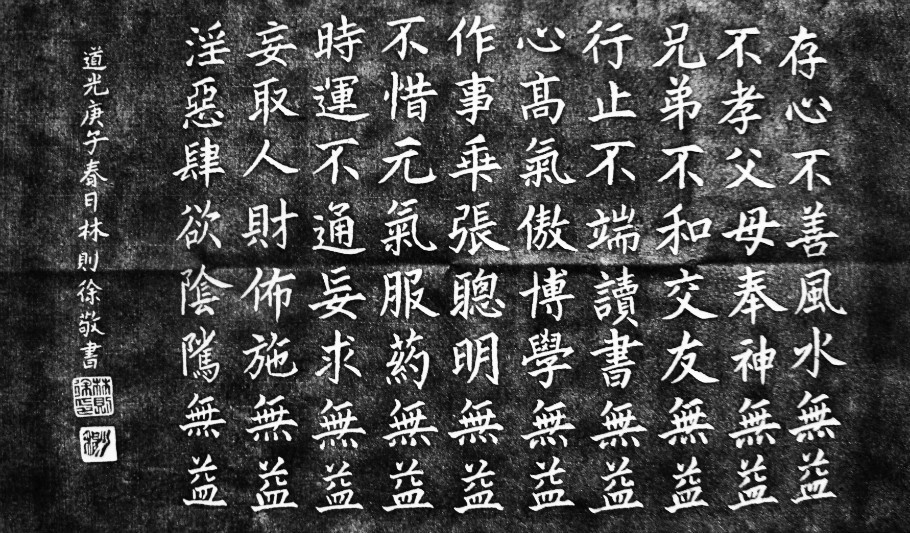 存心不善風水無益
不孝父母奉神無益
兄弟不和交友無益
行止不端讀書無益
心髙氣傲博學無益
作事乖張聰明無益
不惜元氣服藥無益
時運不通妄求無益
妄取人財佈施無益
淫惡肆欲陰隲無益
道光庚子春日林則徐敬書
林則徐印